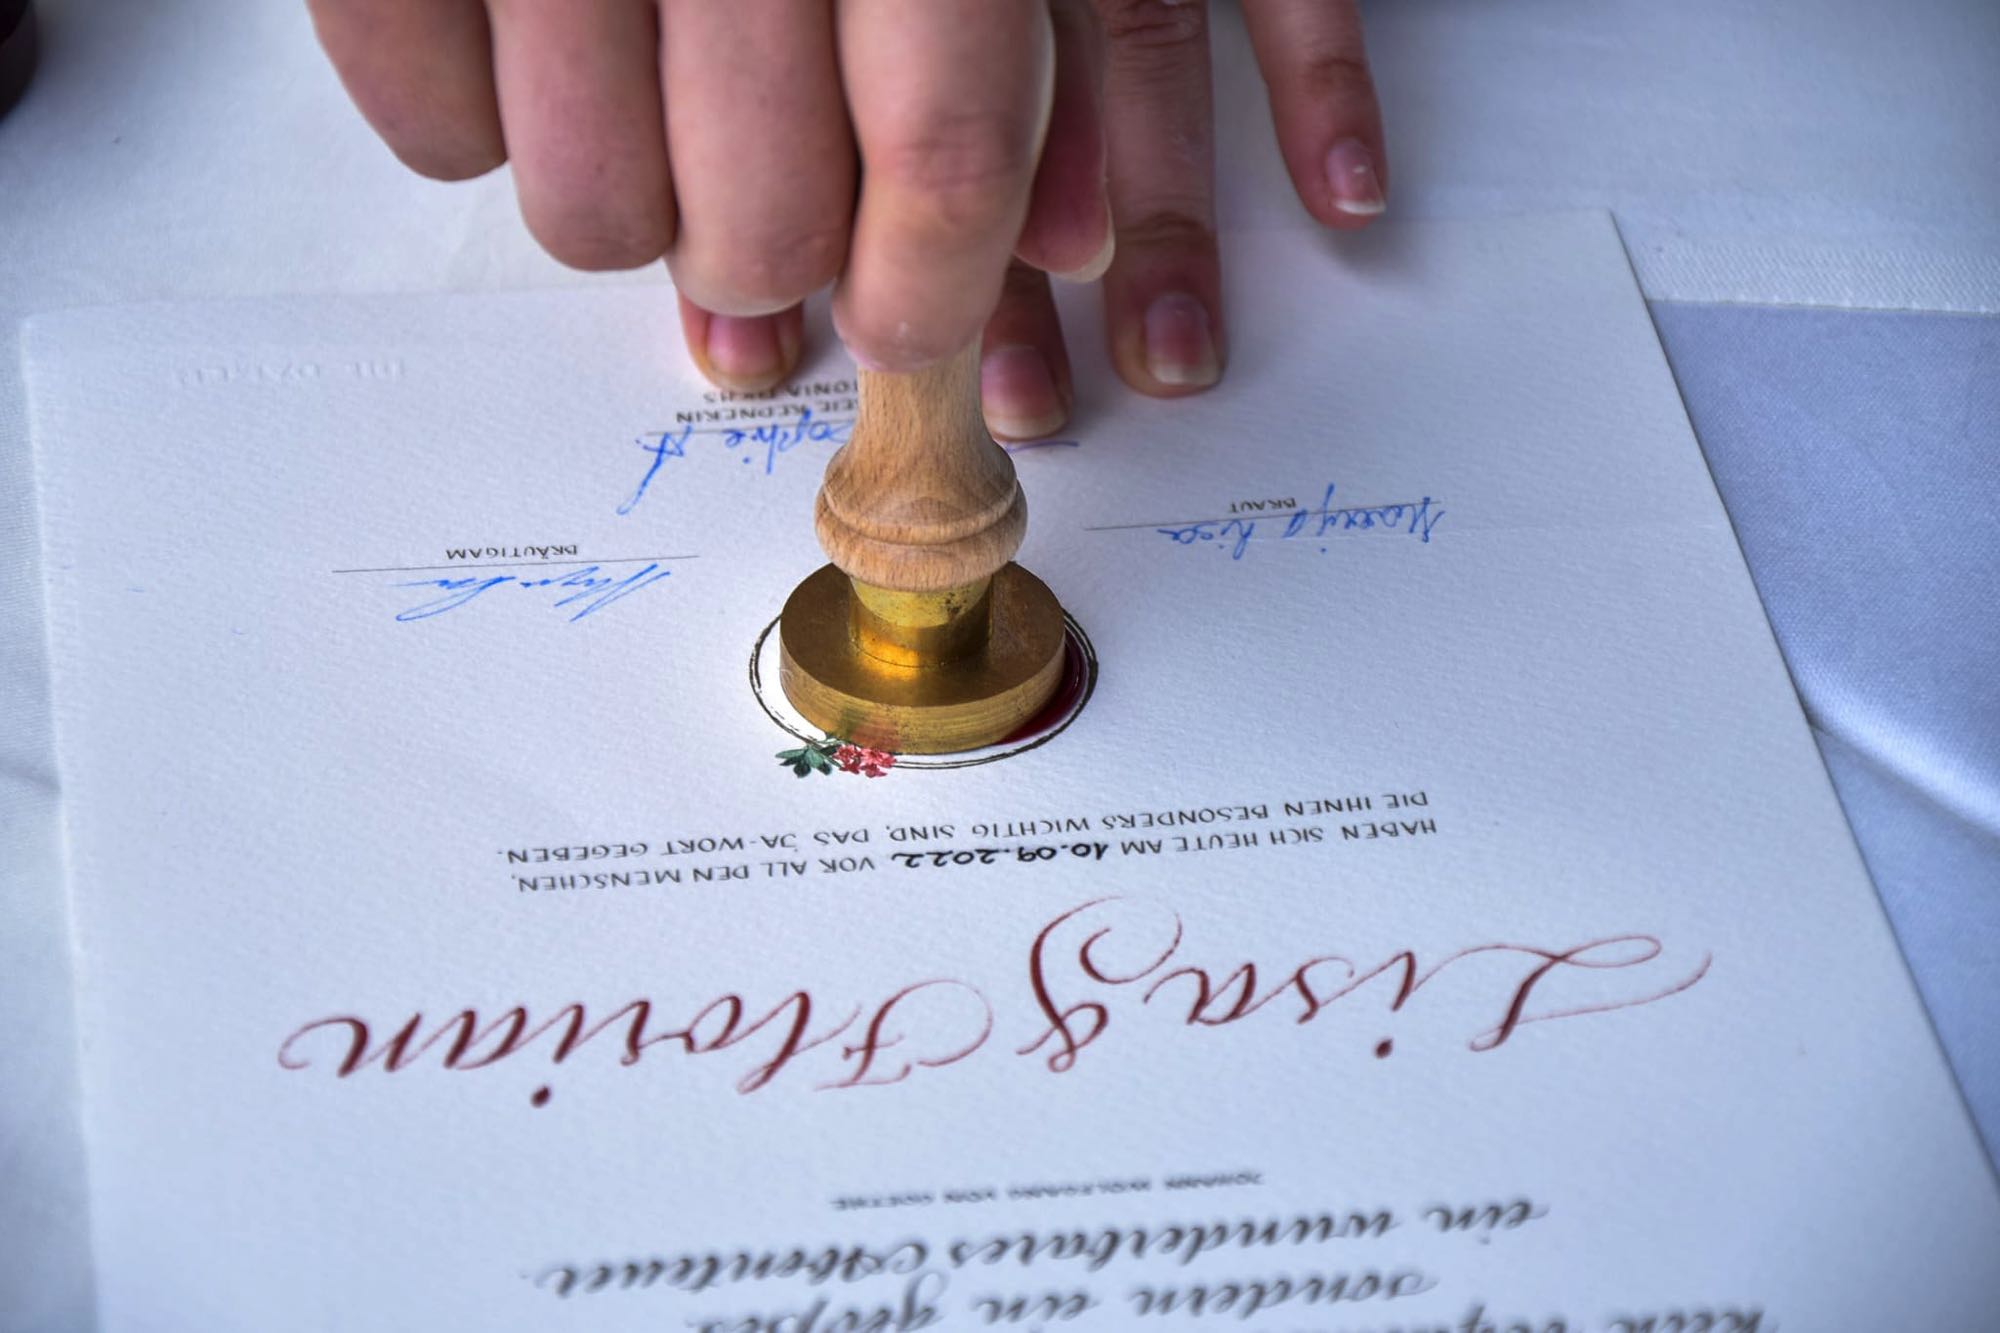 sondern ein großes
ein wunderbares Abenteuer.
JOHANN WOLFGANG VON GOETHE
Lisa & Florian
HABEN SICH HEUTE AM 10.09.2022 VOR ALL DEN MENSCHEN,
DIE IHNEN BESONDERS WICHTIG SIND, DAS JA-WORT GEGEBEN.
Lisa
BRAUT
BRÄUTIGAM
Sophie A.
FREIE REDNERIN